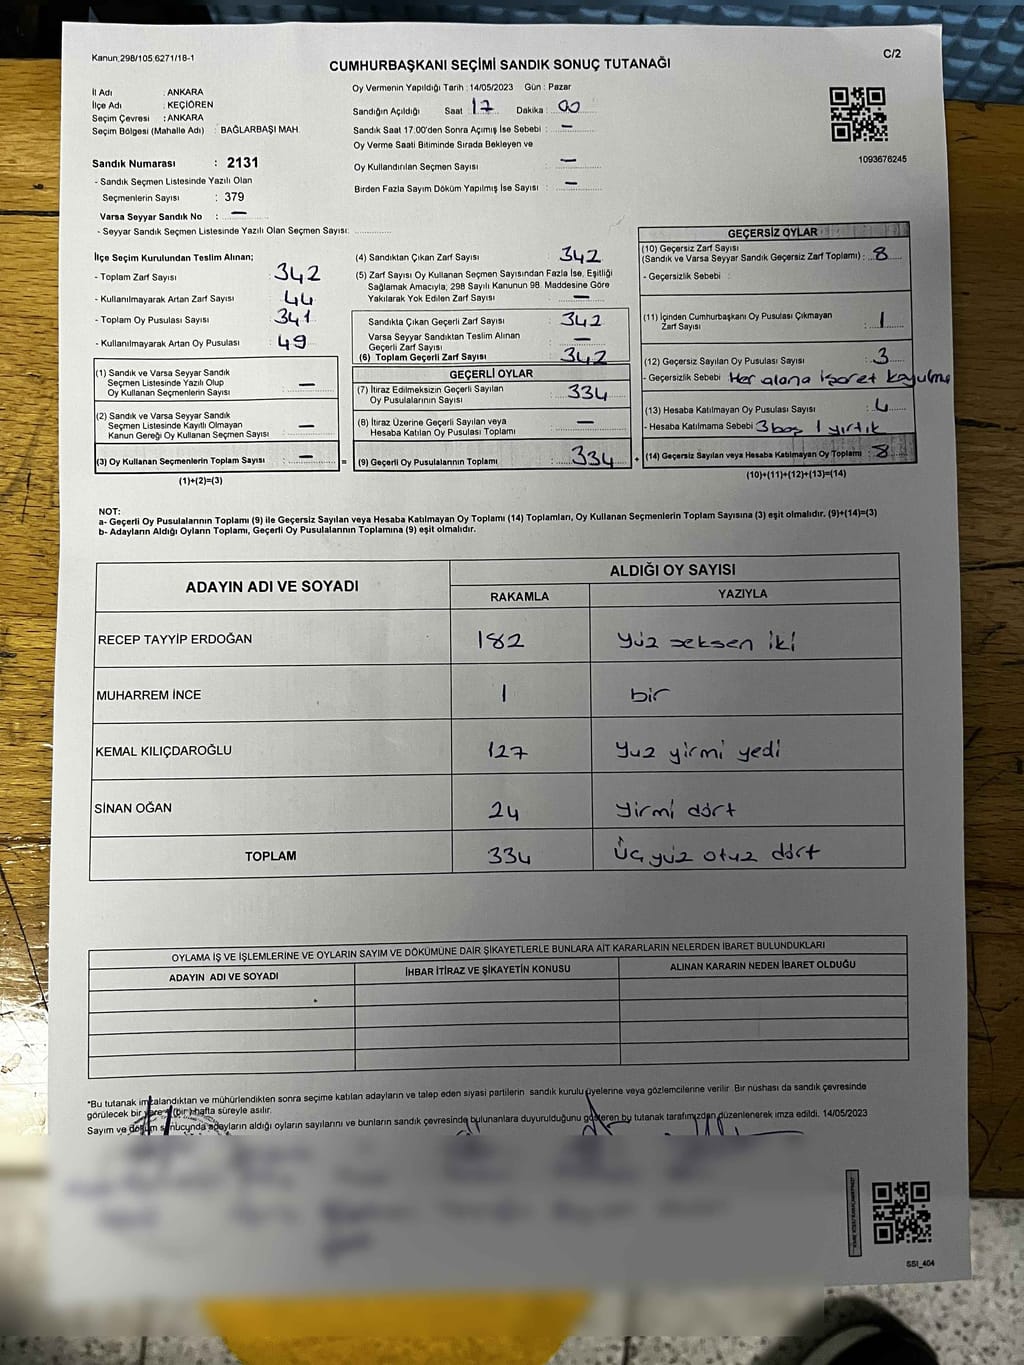 Kanun;298/105,6271/18-1
C/2
CUMHURBAŞKANI SEÇİMİ SANDIK SONUÇ TUTANAĞI
İl Adı : ANKARA
İlçe Adı : KEÇİÖREN
Seçim Çevresi : ANKARA
Seçim Bölgesi (Mahalle Adı) : BAĞLARBAŞI MAH.
Sandık Numarası : 2131
- Sandık Seçmen Listesinde Yazılı Olan
Seçmenlerin Sayısı : 379
Varsa Seyyar Sandık No : —
- Seyyar Sandık Seçmen Listesinde Yazılı Olan Seçmen Sayısı:
Oy Vermenin Yapıldığı Tarih : 14/05/2023 Gün : Pazar
Sandığın Açıldığı Saat 17 Dakika : 00
Sandık Saat 17.00'den Sonra Açımış İse Sebebi : —
Oy Verme Saati Bitiminde Sırada Bekleyen ve
Oy Kullandırılan Seçmen Sayısı : —
Birden Fazla Sayım Döküm Yapılmış İse Sayısı : —
1093676245
İlçe Seçim Kurulundan Teslim Alınan;
- Toplam Zarf Sayısı : 342
- Kullanılmayarak Artan Zarf Sayısı : 44
- Toplam Oy Pusulası Sayısı : 341
- Kullanılmayarak Artan Oy Pusulası : 49
(1) Sandık ve Varsa Seyyar Sandık
Seçmen Listesinde Yazılı Olup
Oy Kullanan Seçmenlerin Sayısı : —
(2) Sandık ve Varsa Seyyar Sandık
Seçmen Listesinde Kayıtlı Olmayan
Kanun Gereği Oy Kullanan Seçmen Sayısı : —
(3) Oy Kullanan Seçmenlerin Toplam Sayısı : —
(1)+(2)=(3)
=
(4) Sandıktan Çıkan Zarf Sayısı : 342
(5) Zarf Sayısı Oy Kullanan Seçmen Sayısından Fazla İse, Eşitliği
Sağlamak Amacıyla; 298 Sayılı Kanunun 98. Maddesine Göre
Yakılarak Yok Edilen Zarf Sayısı : —
Sandıkta Çıkan Geçerli Zarf Sayısı : 342
Varsa Seyyar Sandıktan Teslim Alınan
Geçerli Zarf Sayısı : —
(6) Toplam Geçerli Zarf Sayısı : 342
GEÇERLİ OYLAR
(7) İtiraz Edilmeksizin Geçerli Sayılan
Oy Pusulalarının Sayısı : 334
(8) İtiraz Üzerine Geçerli Sayılan veya
Hesaba Katılan Oy Pusulası Toplamı : —
(9) Geçerli Oy Pusulalarının Toplamı : 334
+
GEÇERSİZ OYLAR
(10) Geçersiz Zarf Sayısı
(Sandık ve Varsa Seyyar Sandık Geçersiz Zarf Toplamı) : 8
- Geçersizlik Sebebi :
(11) İçinden Cumhurbaşkanı Oy Pusulası Çıkmayan
Zarf Sayısı : 1
(12) Geçersiz Sayılan Oy Pusulası Sayısı : 3
- Geçersizlik Sebebi Her alana işaret koyulma
(13) Hesaba Katılmayan Oy Pusulası Sayısı : 4
- Hesaba Katılmama Sebebi 3 boş 1 yırtık
(14) Geçersiz Sayılan veya Hesaba Katılmayan Oy Toplamı : 8
(10)+(11)+(12)+(13)=(14)
NOT:
a- Geçerli Oy Pusulalarının Toplamı (9) ile Geçersiz Sayılan veya Hesaba Katılmayan Oy Toplamı (14) Toplamları, Oy Kullanan Seçmenlerin Toplam Sayısına (3) eşit olmalıdır. (9)+(14)=(3)
b- Adayların Aldığı Oyların Toplamı, Geçerli Oy Pusulalarının Toplamına (9) eşit olmalıdır.
ADAYIN ADI VE SOYADI
ALDIĞI OY SAYISI
RAKAMLA YAZIYLA
RECEP TAYYİP ERDOĞAN 182 Yüz seksen iki
MUHARREM İNCE 1 bir
KEMAL KILIÇDAROĞLU 127 Yuz yirmi yedi
SİNAN OĞAN 24 Yirmi dört
TOPLAM 334 Üç yüz otuz dört
OYLAMA İŞ VE İŞLEMLERİNE VE OYLARIN SAYIM VE DÖKÜMÜNE DAİR ŞİKAYETLERLE BUNLARA AİT KARARLARIN NELERDEN İBARET BULUNDUKLARI
ADAYIN ADI VE SOYADI İHBAR İTİRAZ VE ŞİKAYETİN KONUSU ALINAN KARARIN NEDEN İBARET OLDUĞU
*Bu tutanak imzalandıktan ve mühürlendikten sonra seçime katılan adayların ve talep eden siyasi partilerin sandık kurulu üyelerine veya gözlemcilerine verilir. Bir nüshası da sandık çevresinde
görülecek bir yere (bir) hafta süreyle asılır.
Sayım ve döküm sonucunda adayların aldığı oyların sayılarını ve bunların sandık çevresinde bulunanlara duyurulduğunu gösteren bu tutanak tarafımızdan düzenlenerek imza edildi. 14/05/2023
SSI_404